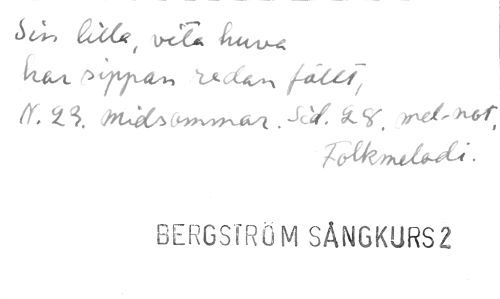 Sin lilla, vita huva
har sippan redan fällt,
N. 23. midsommar. Sid. 28. mel-not.
Folkmelodi.
BERGSTRÖM SÅNGKURS 2